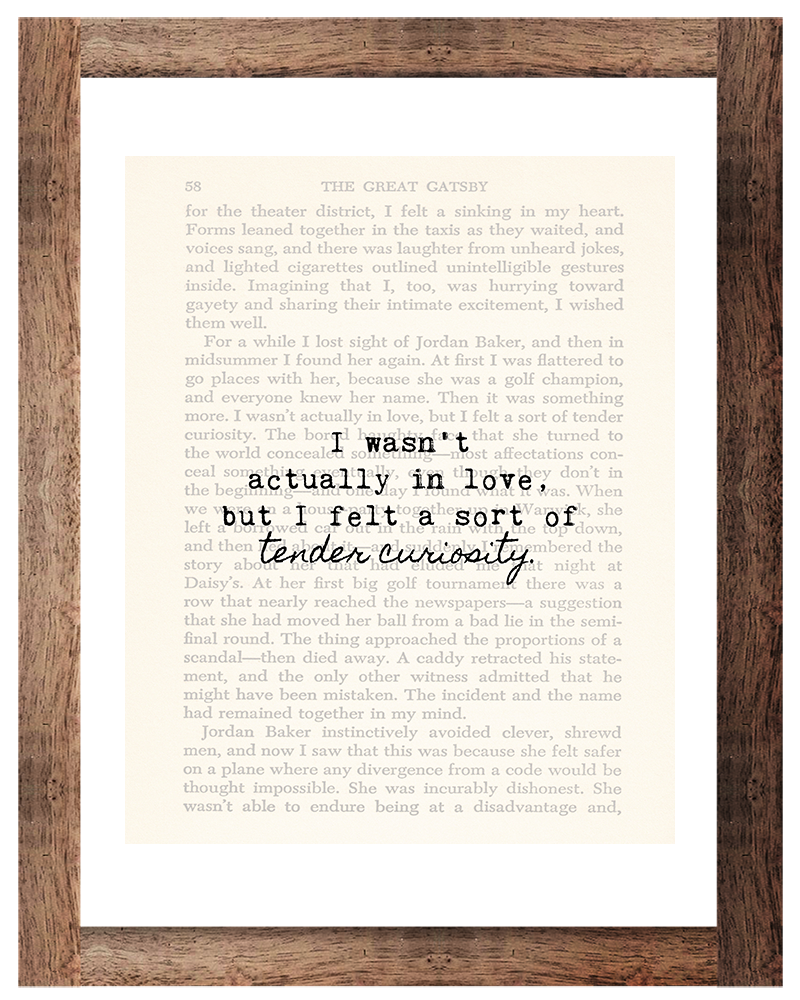 58 THE GREAT GATSBY
for the theater district, I felt a sinking in my heart.
Forms leaned together in the taxis as they waited, and
voices sang, and there was laughter from unheard jokes,
and lighted cigarettes outlined unintelligible gestures
inside. Imagining that I, too, was hurrying toward
gayety and sharing their intimate excitement, I wished
them well.
For a while I lost sight of Jordan Baker, and then in
midsummer I found her again. At first I was flattered to
go places with her, because she was a golf champion,
and everyone knew her name. Then it was something
more. I wasn't actually in love, but I felt a sort of tender
curiosity. The bored haughty face that she turned to
the world concealed something—most affectations con-
ceal something eventually, even though they don't in
the beginning—and one day I found what it was. When
we were on a house-party together up in Warwick, she
left a borrowed car out in the rain with the top down,
and then lied about it—and suddenly I remembered the
story about her that had eluded me that night at
Daisy's. At her first big golf tournament there was a
row that nearly reached the newspapers—a suggestion
that she had moved her ball from a bad lie in the semi-
final round. The thing approached the proportions of a
scandal—then died away. A caddy retracted his state-
ment, and the only other witness admitted that he
might have been mistaken. The incident and the name
had remained together in my mind.
Jordan Baker instinctively avoided clever, shrewd
men, and now I saw that this was because she felt safer
on a plane where any divergence from a code would be
thought impossible. She was incurably dishonest. She
wasn't able to endure being at a disadvantage and,
I wasn't
actually in love,
but I felt a sort of
tender curiosity.